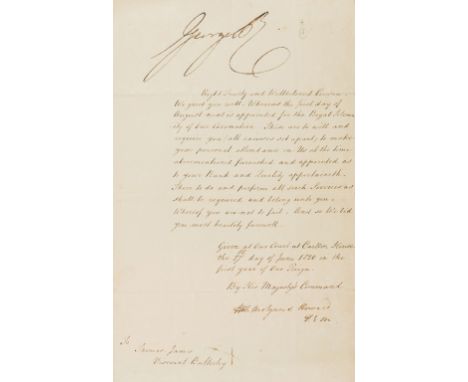 George R
Right Trusty and Wellbeloved Cousin.
We greet you well. Whereas the first day of
August next is appointed for the Royal Solem-
nity of Our Coronation. These are to will and
require you, all excuses set apart, to make
your personal attendance on Us at the time
abovementioned furnished and appointed as
to your Rank and Quality appertaineth.
There to do and perform all such Services as
shall be required and belong unto you.
Whereof you are not to fail. And so We bid
you most heartily farewell.
Given at Our Court at Carlton House
the day of June 1820 in the
first year of Our Reign.
By His Majesty's Command
Molyneux Howard
D E M
To
James
Viscount